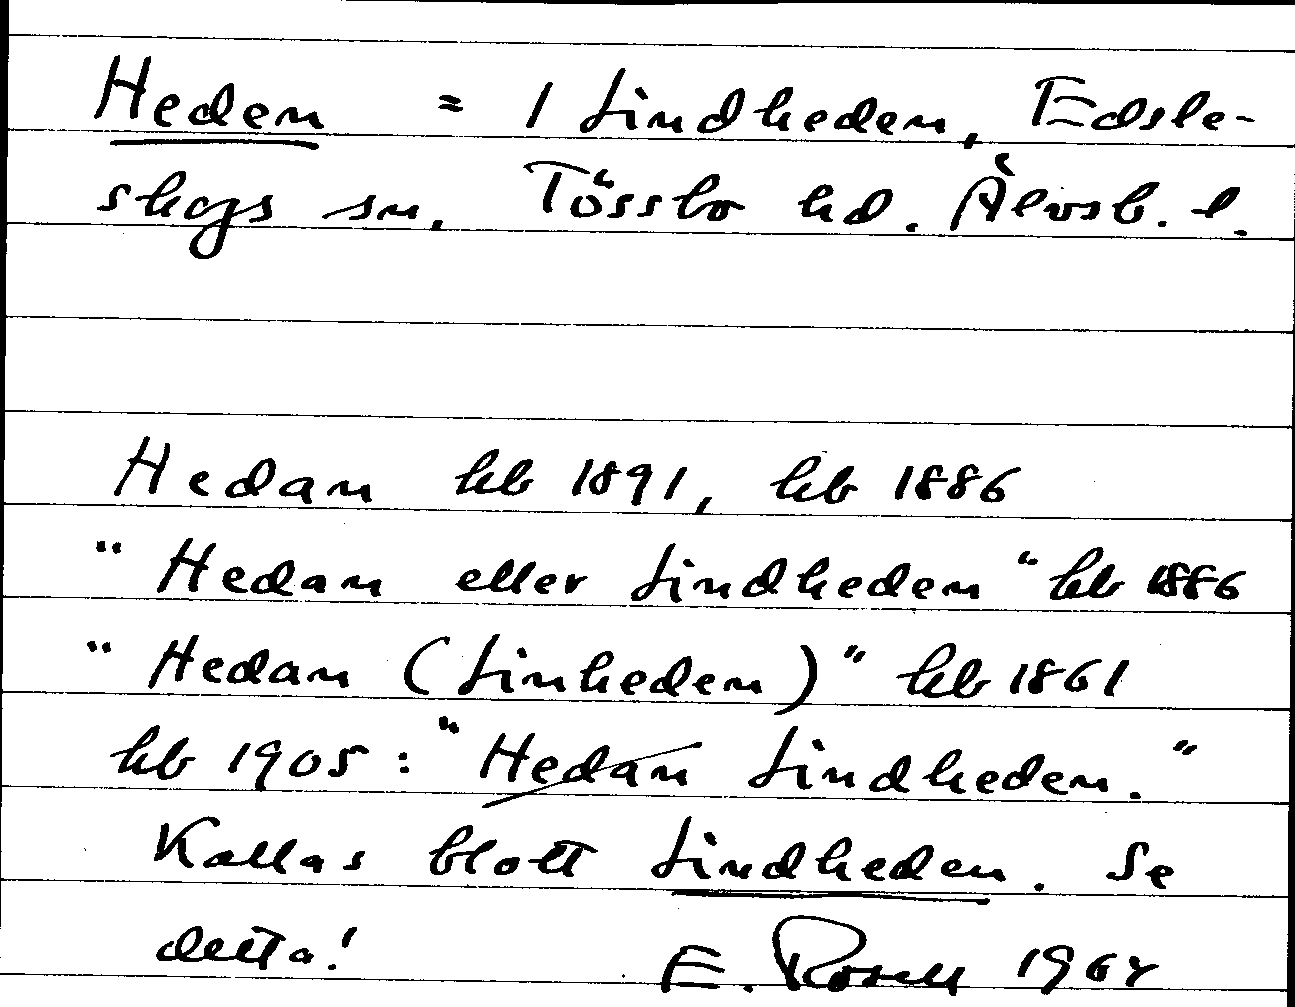 Heden = 1 Lindheden, Edsle-
skogs sn. Tössbo hd. Älvsb. l.
Hedan hb 1891, hb 1886
"Hedan eller Lindheden" hb 1886
"Hedan (Linheden)" hb 1861
hb 1905: "Hedan Lindheden."
Kallas blott Lindheden. Se
detta! E. Rosell